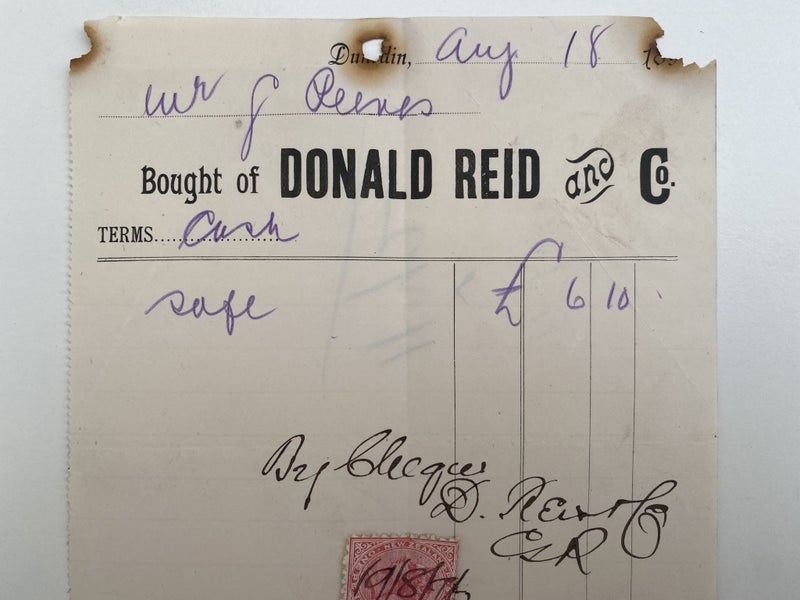 Dunedin, Aug 18
Mr J Reeves
Bought of DONALD REID and Co.
TERMS. Cash
safe £ 6 10
By Cheque
D. Reid & Co
NEW ZEALAND